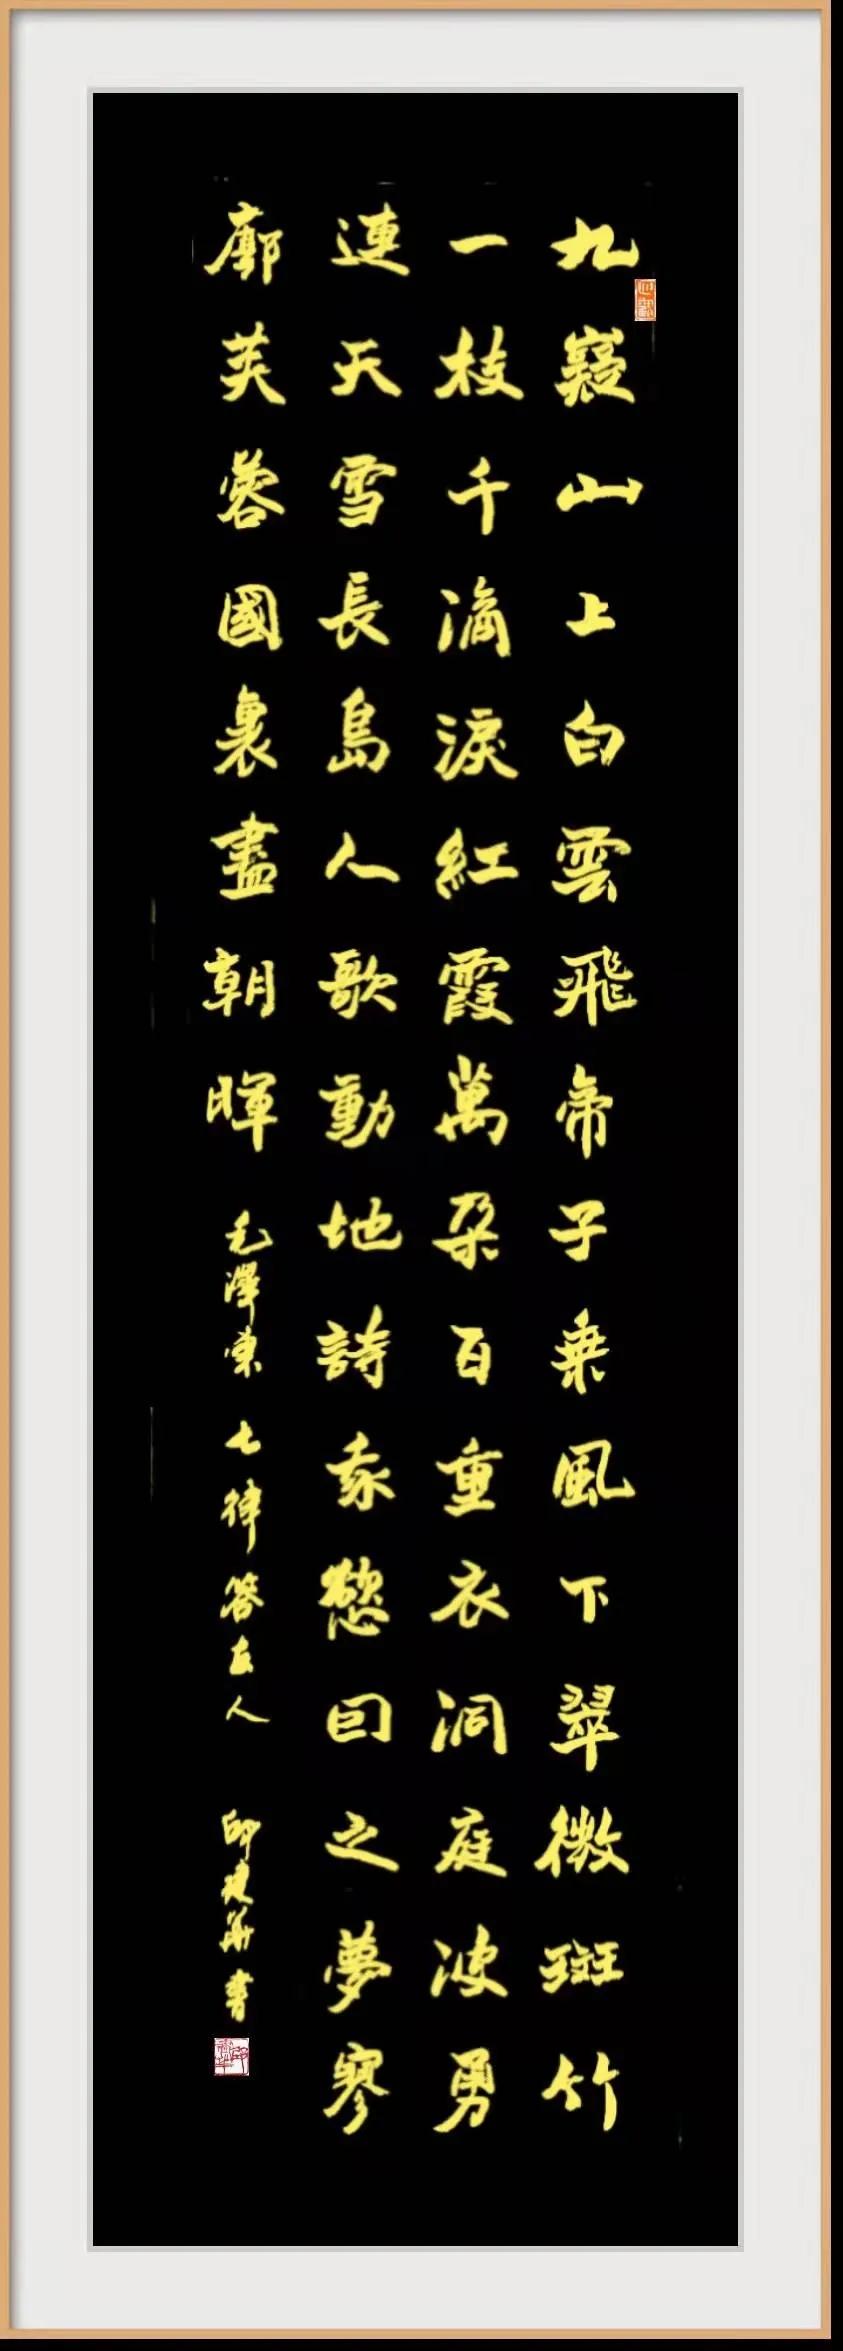 九嶷山上白雲飛帝子乗風下翠微斑竹
一枝千滴淚紅霞萬朶百重衣洞庭波勇
連天雪長島人歌動地詩我慾回之夢寥
廓芙蓉國裏盡朝暉
毛澤東 七律 答友人
邱建華書